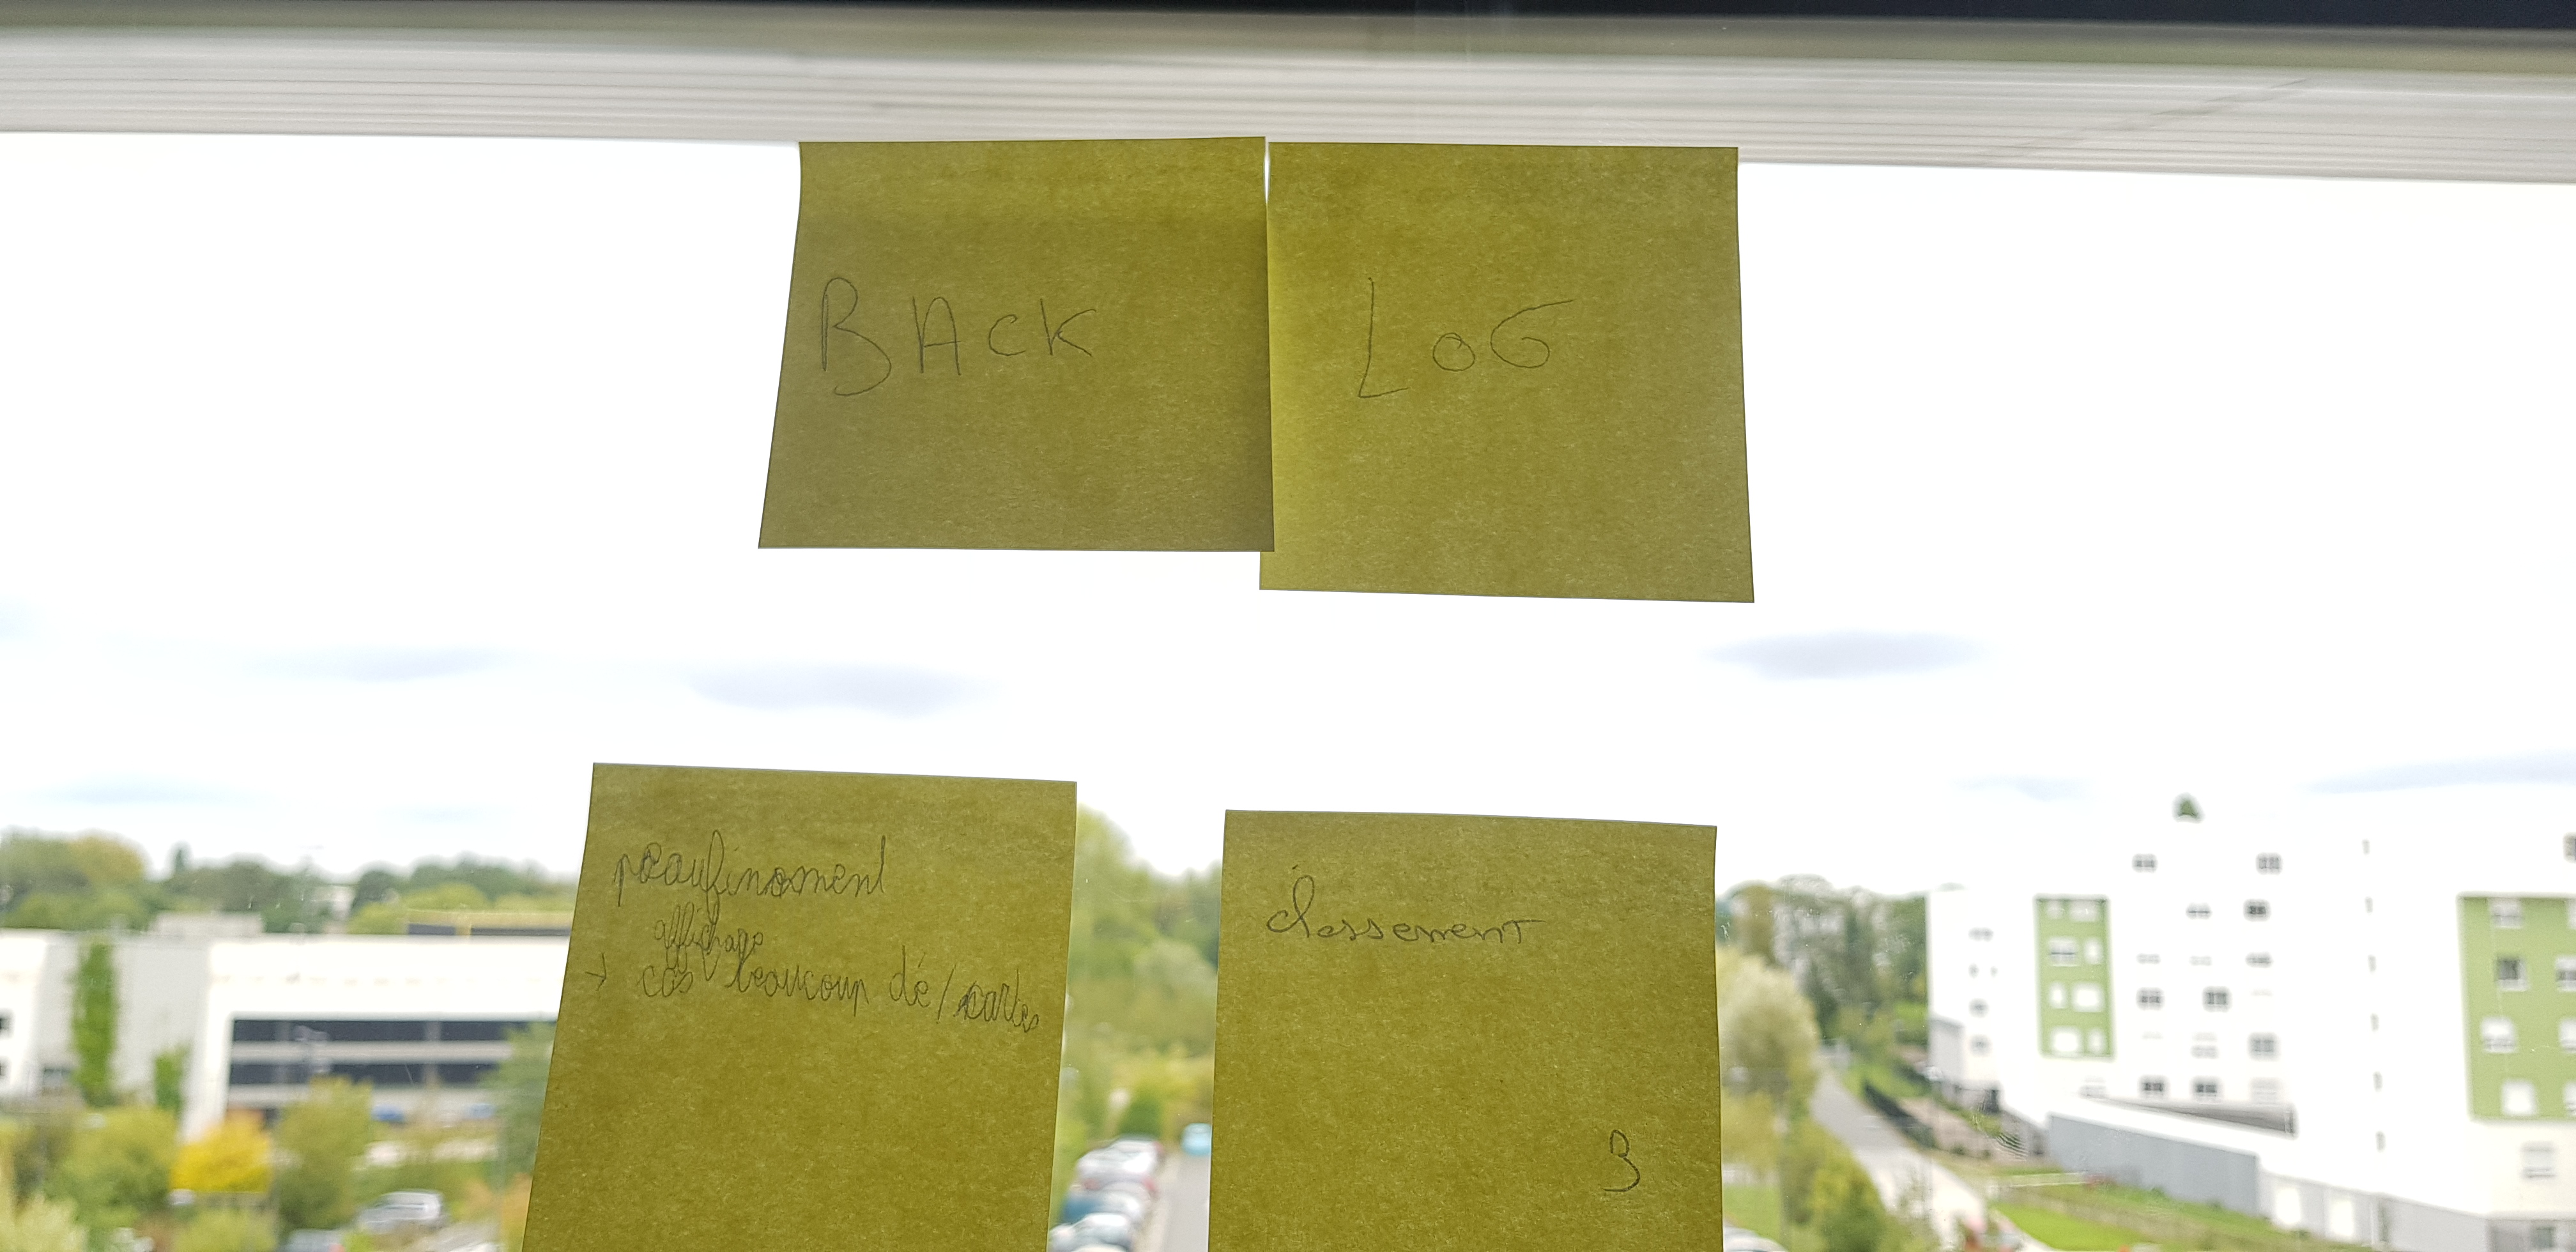 BACK
LOG
peaufinement
affichage
→ cas beaucoup dé/cartes
classement
3